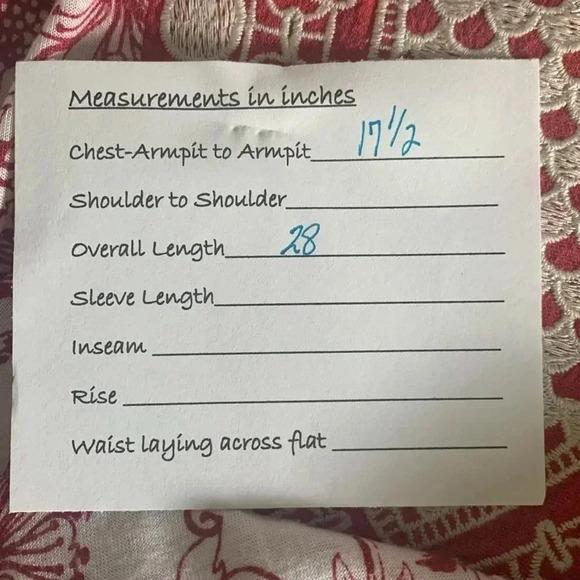 Measurements in inches
Chest-Armpit to Armpit 17 1/2
Shoulder to Shoulder
Overall Length 28
Sleeve Length
Inseam
Rise
Waist laying across flat